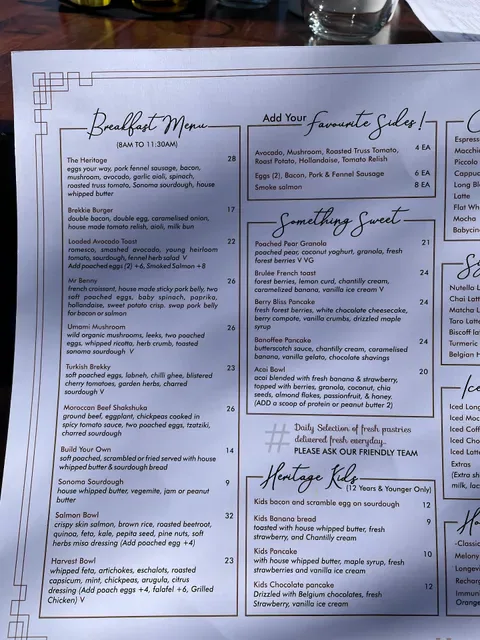 Breakfast Menu
(8AM TO 11:30AM)
The Heritage 28
eggs your way, pork fennel sausage, bacon,
mushroom, avocado, garlic aioli, spinach,
roasted truss tomato, Sonoma sourdough, house
whipped butter
Brekkie Burger 17
double bacon, double egg, caramelised onion,
house made tomato relish, aioli, milk bun
Loaded Avocado Toast 22
romesco, smashed avocado, young heirloom
tomato, sourdough, fennel herb salad V
Add poached eggs (2) +6, Smoked Salmon +8
Mr Benny 26
french croissant, house made sticky pork belly, two
soft poached eggs, baby spinach, paprika,
hollandaise, sweet potato crisp. swap pork belly
for bacon or salmon
Umami Mushroom 26
wild organic mushrooms, leeks, two poached
eggs, whipped ricotta, herb crumb, toasted
sonoma sourdough V
Turkish Brekky 23
soft poached eggs, labneh, chilli ghee, blistered
cherry tomatoes, garden herbs, charred
sourdough V
Moroccan Beef Shakshuka 26
ground beef, eggplant, chickpeas cooked in
spicy tomato sauce, two poached eggs, tzatziki,
charred sourdough
Build Your Own 14
soft poached, scrambled or fried served with house
whipped butter & sourdough bread
Sonoma Sourdough 9
house whipped butter, vegemite, jam or peanut
butter
Salmon Bowl 32
crispy skin salmon, brown rice, roasted beetroot,
quinoa, feta, kale, pepita seed, pine nuts, soft
herbs miso dressing (Add poached egg +4)
Harvest Bowl 23
whipped feta, artichokes, eschalots, roasted
capsicum, mint, chickpeas, arugula, citrus
dressing (Add poach eggs +4, falafel +6, Grilled
Chicken) V
Add Your Favourite Sides!
Avocado, Mushroom, Roasted Truss Tomato, 4 EA
Roast Potato, Hollandaise, Tomato Relish
Eggs (2), Bacon, Pork & Fennel Sausage 6 EA
Smoke salmon 8 EA
Something Sweet
Poached Pear Granola 21
poached pear, coconut yoghurt, granola, fresh
forest berries V VG
Brulée French toast 24
forest berries, lemon curd, chantilly cream,
caramelized banana, vanilla ice cream V
Berry Bliss Pancake 24
fresh forest berries, white chocolate cheesecake,
berry compote, vanilla crumbs, drizzled maple
syrup
Banoffee Pancake 24
butterscotch sauce, chantilly cream, caramelised
banana, vanilla gelato, chocolate shavings
Acai Bowl 20
acai blended with fresh banana & strawberry,
topped with berries, granola, coconut, chia
seeds, almond flakes, passionfruit, & honey.
(ADD a scoop of protein or peanut butter 2)
# Daily Selection of fresh pastries
delivered fresh everyday...
PLEASE ASK OUR FRIENDLY TEAM
Heritage Kids
(12 Years & Younger Only)
Kids bacon and scramble egg on sourdough 12
Kids Banana bread 9
toasted with house whipped butter, fresh
strawberry, and Chantilly cream
Kids Pancake 10
with house whipped butter, maple syrup, fresh
strawberries and vanilla ice cream
Kids Chocolate pancake 12
Drizzled with Belgium chocolates, fresh
Strawberry, vanilla ice cream
Piccolo
Long Bl
Latte
Flat Wh
Mocha
Nutella L
Chai Latt
Matcha L
Taro Latte
Biscoff la
Turmeric
Belgian H
Ice
Iced Long
Iced Moc
Iced Coff
Iced Cho
Iced Latte
Extras
(Extra sh
milk, lac
-Classic
Melony
Longevi
Recharg
Immuni
Orange